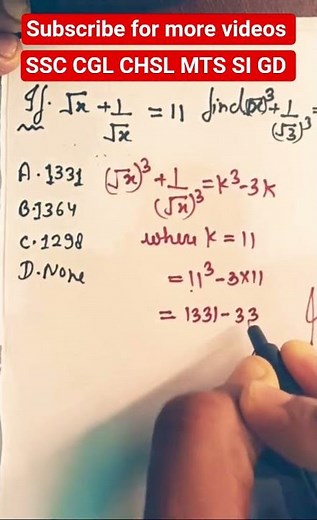 Subscribe for more videos
SSC CGL CHSL MTS SI GD
If. √x + 1/√x = 11 find (√x)³ + 1/(√3)³ =
A. 1331
B. 1364
C. 1298
D. None
(√x)³ + 1/(√x)³ = k³-3k
where k = 11
= 11³-3×11
= 1331-33